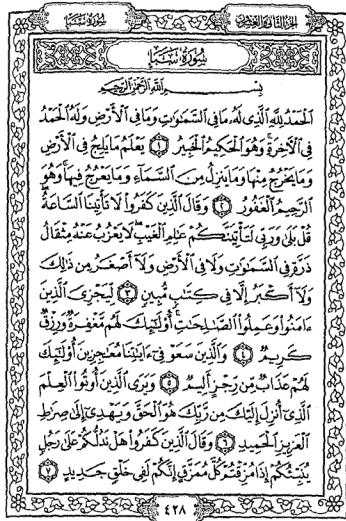 الجزء الثاني والعشرون
سورة سبأ
سورة سبأ
بسم الله الرحمن الرحيم
الْحَمْدُ لِلَّهِ الَّذِي لَهُ مَا فِي السَّمَٰوَٰتِ وَمَا فِي الْأَرْضِ وَلَهُ الْحَمْدُ
فِي الْآخِرَةِ وَهُوَ الْحَكِيمُ الْخَبِيرُ ١ يَعْلَمُ مَا يَلِجُ فِي الْأَرْضِ
وَمَا يَخْرُجُ مِنْهَا وَمَا يَنزِلُ مِنَ السَّمَاءِ وَمَا يَعْرُجُ فِيهَا وَهُوَ
الرَّحِيمُ الْغَفُورُ ٢ وَقَالَ الَّذِينَ كَفَرُوا لَا تَأْتِينَا السَّاعَةُ
قُلْ بَلَىٰ وَرَبِّي لَتَأْتِيَنَّكُمْ عَٰلِمِ الْغَيْبِ لَا يَعْزُبُ عَنْهُ مِثْقَالُ
ذَرَّةٍ فِي السَّمَٰوَٰتِ وَلَا فِي الْأَرْضِ وَلَا أَصْغَرُ مِن ذَٰلِكَ
وَلَا أَكْبَرُ إِلَّا فِي كِتَٰبٍ مُّبِينٍ ٣ لِّيَجْزِيَ الَّذِينَ
ءَامَنُوا وَعَمِلُوا الصَّٰلِحَٰتِ أُولَٰئِكَ لَهُم مَّغْفِرَةٌ وَرِزْقٌ
كَرِيمٌ ٤ وَالَّذِينَ سَعَوْ فِي ءَايَٰتِنَا مُعَٰجِزِينَ أُولَٰئِكَ
لَهُمْ عَذَابٌ مِّن رِّجْزٍ أَلِيمٌ ٥ وَيَرَى الَّذِينَ أُوتُوا الْعِلْمَ
الَّذِي أُنزِلَ إِلَيْكَ مِن رَّبِّكَ هُوَ الْحَقَّ وَيَهْدِي إِلَىٰ صِرَٰطِ
الْعَزِيزِ الْحَمِيدِ ٦ وَقَالَ الَّذِينَ كَفَرُوا هَلْ نَدُلُّكُمْ عَلَىٰ رَجُلٍ
يُنَبِّئُكُمْ إِذَا مُزِّقْتُمْ كُلَّ مُمَزَّقٍ إِنَّكُمْ لَفِي خَلْقٍ جَدِيدٍ ٧
٤٢٨